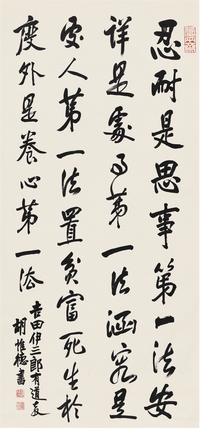 忍耐是思事第一法安
详是處事第一法涵容是
處人第一法置貧富死生於
度外是養心第一法
吉田伊三郎有道友
胡惟德書